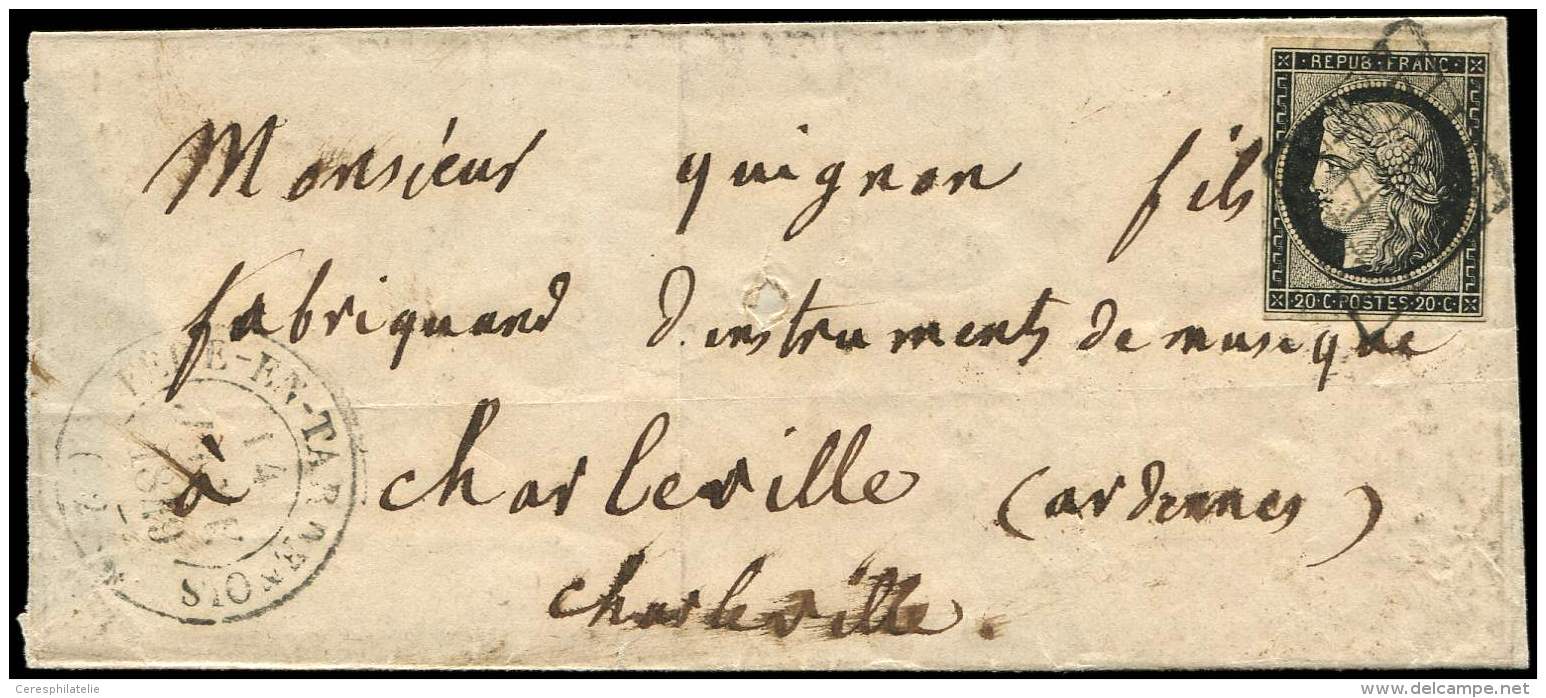 REPUB·FRANC
20·C·POSTES·20·C
Monsieur quignon fils
fabriquand d'instruments de musique
à charleville (ardennes)
charleville.
FERE-EN-TARDENOIS
14
1849
Ceresphilatelie
www.delcampe.net